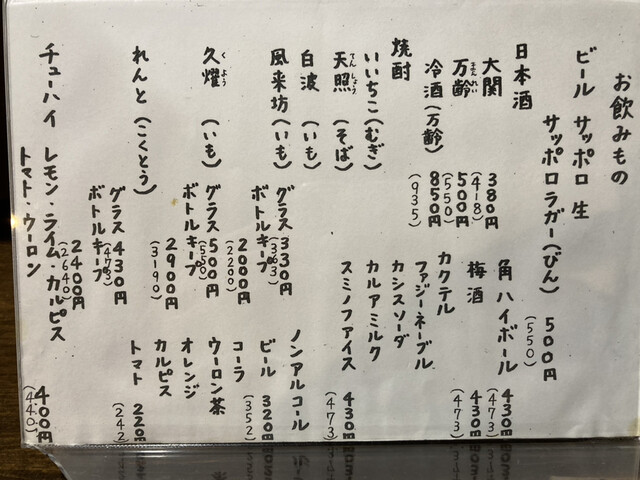 お飲みもの
ビール サッポロ 生
サッポロラガー(びん) 500円
(550)
日本酒
大関 380円
(418)
万齢 500円
まんれい
(550)
冷酒(万齢) 850円
(935)
焼酎
いいちこ(むぎ)
天照(そば)
てんしょう
白波(いも)
風来坊(いも) グラス 330円
(363)
ボトルキープ 2000円
(2200)
久耀(いも) グラス 500円
くよう
(550)
ボトルキープ 2900円
(3190)
れんと(こくとう) グラス 430円
(473)
ボトルキープ 2400円
(2640)
チューハイ レモン・ライム・カルピス
トマト・ウーロン 400円
(440)
角ハイボール 430円
(473)
梅酒 430円
(473)
カクテル
ファジーネーブル
カシスソーダ
カルアミルク
スミノフアイス 430円
(473)
ノンアルコール
ビール 320円
(352)
コーラ
ウーロン茶
オレンジ
カルピス
トマト 220円
(242)